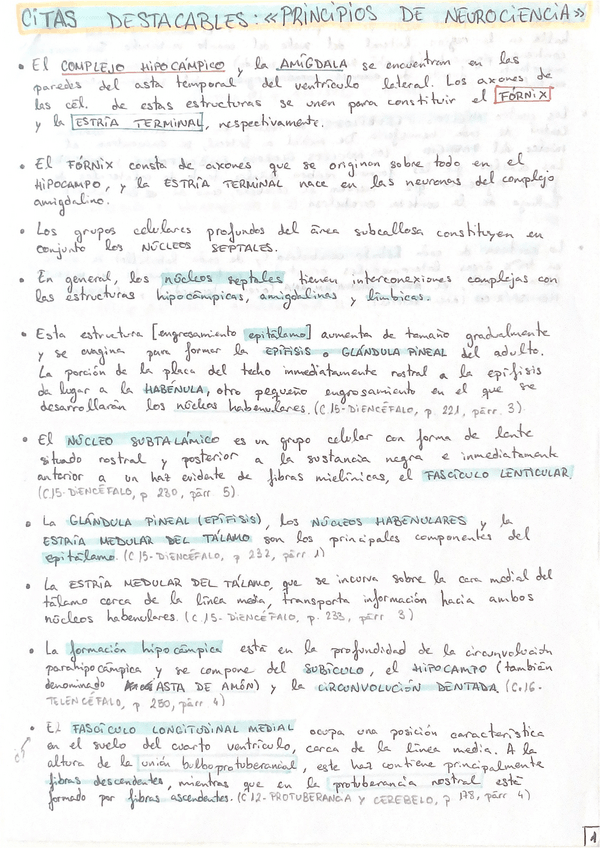 CITAS DESTACABLES: «PRINCIPIOS DE NEUROCIENCIA»
• El COMPLEJO HIPOCÁMPICO y la AMÍGDALA se encuentran en las
paredes del asta temporal del ventrículo lateral. Los axones de
las cél. de estas estructuras se unen para constituir el FÓRNIX
y la ESTRÍA TERMINAL, respectivamente.
• El FÓRNIX consta de axones que se originan sobre todo en el
HIPOCAMPO, y la ESTRÍA TERMINAL nace en las neuronas del complejo
amigdalino.
• Los grupos celulares profundos del área subcallosa constituyen en
conjunto los NÚCLEOS SEPTALES.
• En general, los núcleos septales tienen interconexiones complejas con
las estructuras hipocámpicas, amigdalinas y límbicas.
• Esta estructura [engrosamiento epitálamo] aumenta de tamaño gradualmente
y se evagina para formar la EPÍFISIS o GLÁNDULA PINEAL del adulto.
La porción de la placa del techo inmediatamente rostral a la epífisis
da lugar a la HABÉNULA, otro pequeño engrosamiento en el que se
desarrollarán los núcleos habenulares. (C 15-DIENCÉFALO, p 221, párr. 3).
• El NÚCLEO SUBTALÁMICO es un grupo celular con forma de lente
situado rostral y posterior a la sustancia negra e inmediatamente
anterior a un haz evidente de fibras mielínicas, el FASCÍCULO LENTICULAR
(C15-DIENCÉFALO, p 230, párr 5).
• La GLÁNDULA PINEAL (EPÍFISIS), los NÚCLEOS HABENULARES y la
ESTRÍA MEDULAR DEL TÁLAMO son los principales componentes del
epitálamo. (C 15-DIENCÉFALO, p 232, párr 1)
• La ESTRÍA MEDULAR DEL TÁLAMO, que se incurva sobre la cara medial del
tálamo cerca de la línea media, transporta información hacia ambos
núcleos habenulares. (C.15-DIENCÉFALO, p. 233, párr 3)
• La formación hipocámpica está en la profundidad de la circunvolución
parahipocámpica y se compone del SUBÍCULO, el HIPOCAMPO (también
denominado ASTA DE AMÓN) y la CIRCUNVOLUCIÓN DENTADA. (C.16-
TELENCÉFALO, p 250, párr 4)
• El FASCÍCULO LONGITUDINAL MEDIAL ocupa una posición característica
en el suelo del cuarto ventrículo, cerca de la línea media. A la
altura de la unión bulboprotuberancial, este haz contiene principalmente
fibras descendentes, mientras que en la protuberancia rostral está
formado por fibras ascendentes. (C 12-PROTUBERANCIA Y CEREBELO, p 178, párr 4)
1